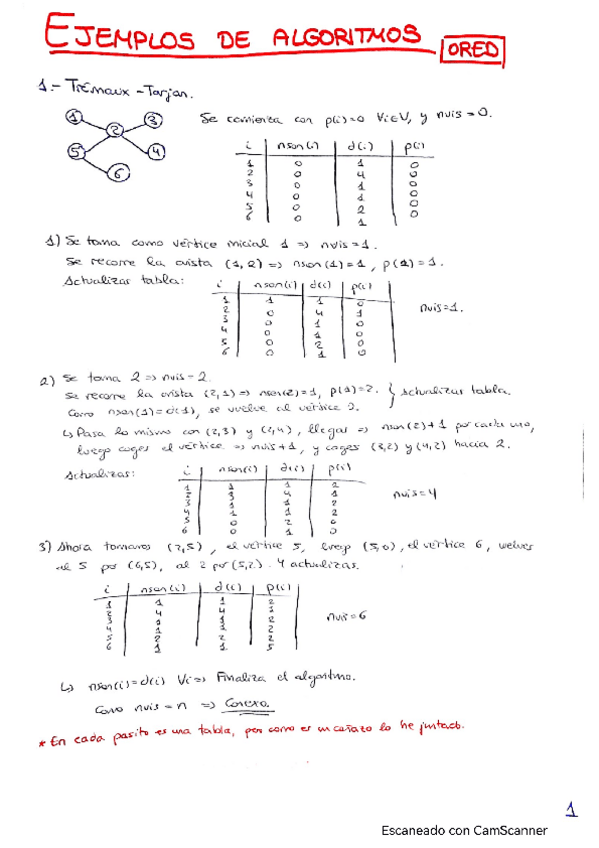 EJEMPLOS DE ALGORITMOS ORED
1.- Trémaux-Tarjan.
1 2 3 4 5 6
Se comienza con p(i)=0 ∀i∈V, y nuis=0.
i nson(i) d(i) p(i)
1 0 1 0
2 0 4 0
3 0 1 0
4 0 1 0
5 0 2 0
6 0 1 0
1) Se toma como vértice inicial 1 => nuis=1.
Se recorre la arista (1,2) => nson(1)=1, p(2)=1.
Actualizar tabla:
i nson(i) d(i) p(i)
1 1 1 0
2 0 4 1
3 0 1 0
4 0 1 0
5 0 2 0
6 0 1 0
nuis=1.
2) Se toma 2 => nuis=2.
Se recorre la arista (2,1) => nson(2)=1, p(1)=2. } Actualizar tabla.
Como nson(1)=d(1), se vuelve al vértice 2.
↳ Pasa lo mismo con (2,3) y (2,4), llegas => nson(2)+1 por cada uno,
luego coges el vértice => nuis+1, y coges (3,2) y (4,2) hacia 2.
Actualizas:
i nson(i) d(i) p(i)
1 1 1 2
2 3 4 1
3 1 1 2
4 1 1 2
5 0 2 0
6 0 1 0
nuis=4
3) Ahora tomamos (2,5), el vértice 5, luego (5,6), el vértice 6, vuelves
al 5 por (6,5), al 2 por (5,2). Y actualizas.
i nson(i) d(i) p(i)
1 1 1 2
2 4 4 1
3 1 1 2
4 1 1 2
5 2 2 2
6 1 1 5
nuis=6
↳ nson(i)=d(i) ∀i => Finaliza el algoritmo.
Como nuis=n => Conexo.
* En cada pasito es una tabla, pero como es un coñazo lo he juntado.
1
Escaneado con CamScanner